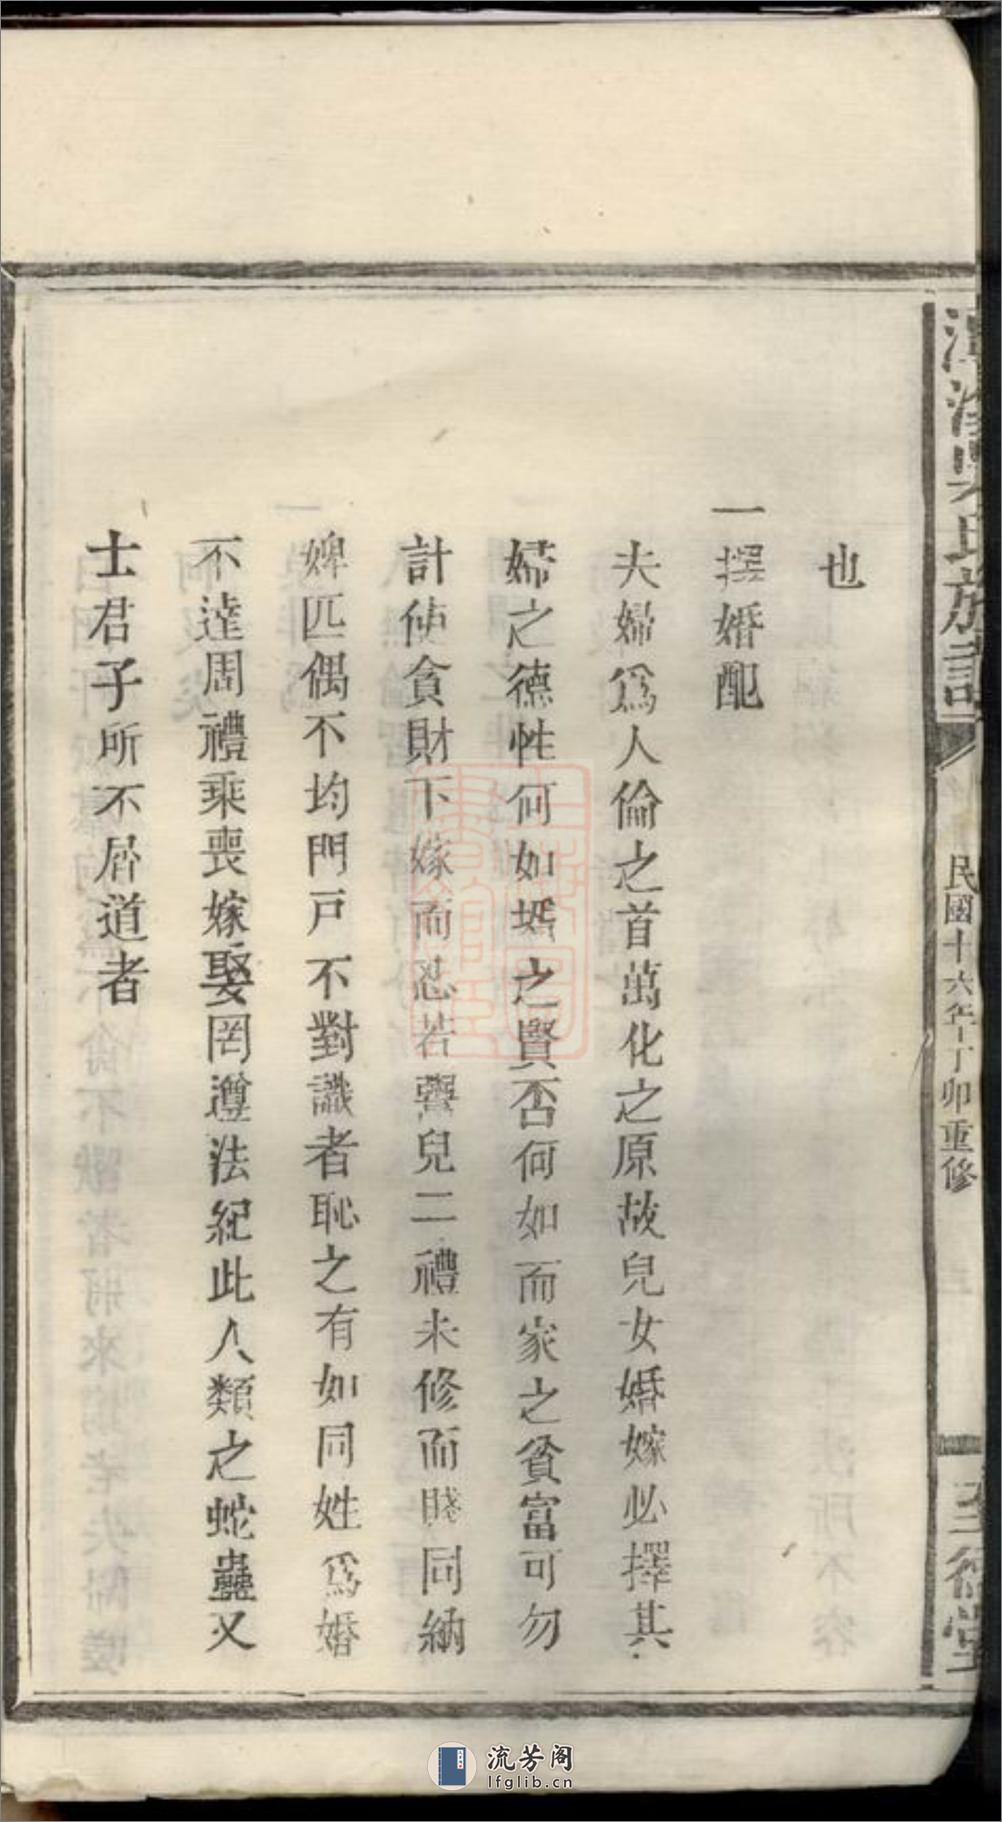 也
一撰婚配
夫婦爲人倫之首萬化之原故兒女婚嫁必擇其
婦之德性何如壻之賢否何如而家之貧富可勿
計使貪財下嫁而忍若鬻兒二禮未修而賤同納
婢匹偶不均門戸不對識者恥之有如同姓爲婚
不達周禮乘喪嫁娶罔遵法紀此人類之蛇蠱又
士君子所不屑道者
吳氏族譜
民國十六年丁卯重修
至德堂
流芳阁
lfglib.cn